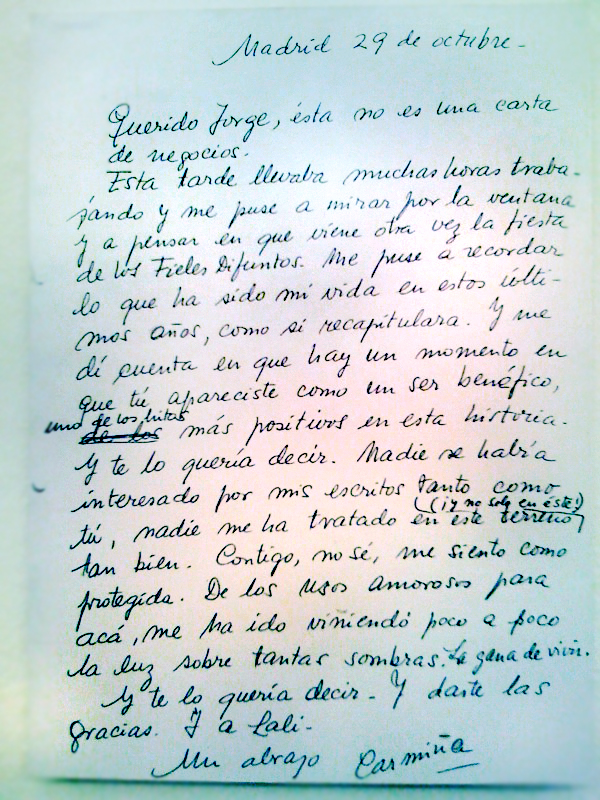 Madrid 29 de octubre -
Querido Jorge, ésta no es una carta
de negocios.
Esta tarde llevaba muchas horas traba-
jando y me puse a mirar por la ventana
y a pensar en que viene otra vez la fiesta
de los Fieles Difuntos. Me puse a recordar
lo que ha sido mi vida en estos últi-
mos años, como si recapitulara. Y me
dí cuenta en que hay un momento en
que tú apareciste como un ser benéfico,
uno de los hitos
de los más positivos en esta historia.
Y te lo quería decir. Nadie se habría
interesado por mis escritos tanto como
(¡y no solo en éste!)
tú, nadie me ha tratado en este terreno
tan bien. Contigo, no sé, me siento como
protegida. De los usos amorosos para
acá, me ha ido viniendo poco a poco
la luz sobre tantas sombras. La gana de vivir.
Y te lo quería decir - Y darte las
gracias. Y a Lali -
Un abrazo Carmiña